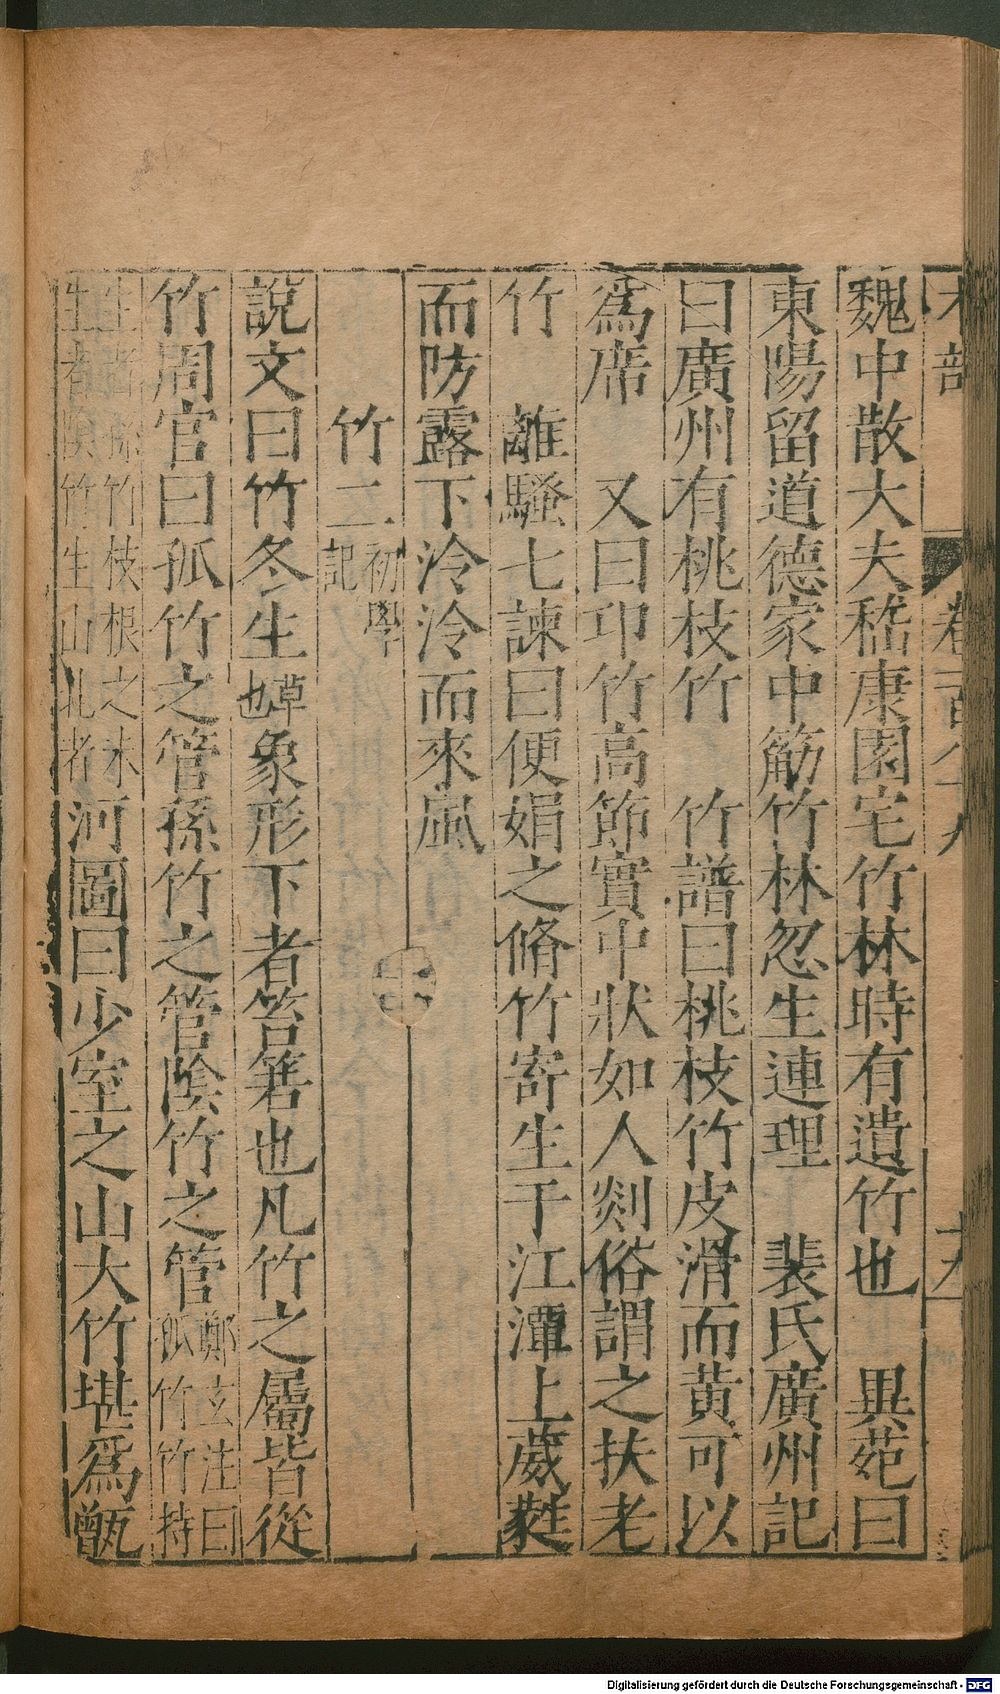 木部 卷百八十九 十九
魏中散大夫嵇康園宅竹林時有遺竹也 異苑曰
東陽留道德家中筯竹林忽生連理 裴氏廣州記
曰廣州有桃枝竹 竹譜曰桃枝竹皮滑而黃可以
爲席 又曰卭竹高節實中狀如人剡俗謂之扶老
竹 離騷七諫曰便娟之脩竹寄生于江潭上葳蕤
而防露下泠泠而來風
竹二初學記
說文曰竹冬生草也象形下者笞箬也凡竹之屬皆從
竹周官曰孤竹之管孫竹之管陰竹之管鄭玄注曰孤竹竹特
生者孫竹枝根之末生者陰竹生山北者河圖曰少室之山大竹堪爲甑
Digitalisierung gefördert durch die Deutsche Forschungsgemeinschaft - DFG